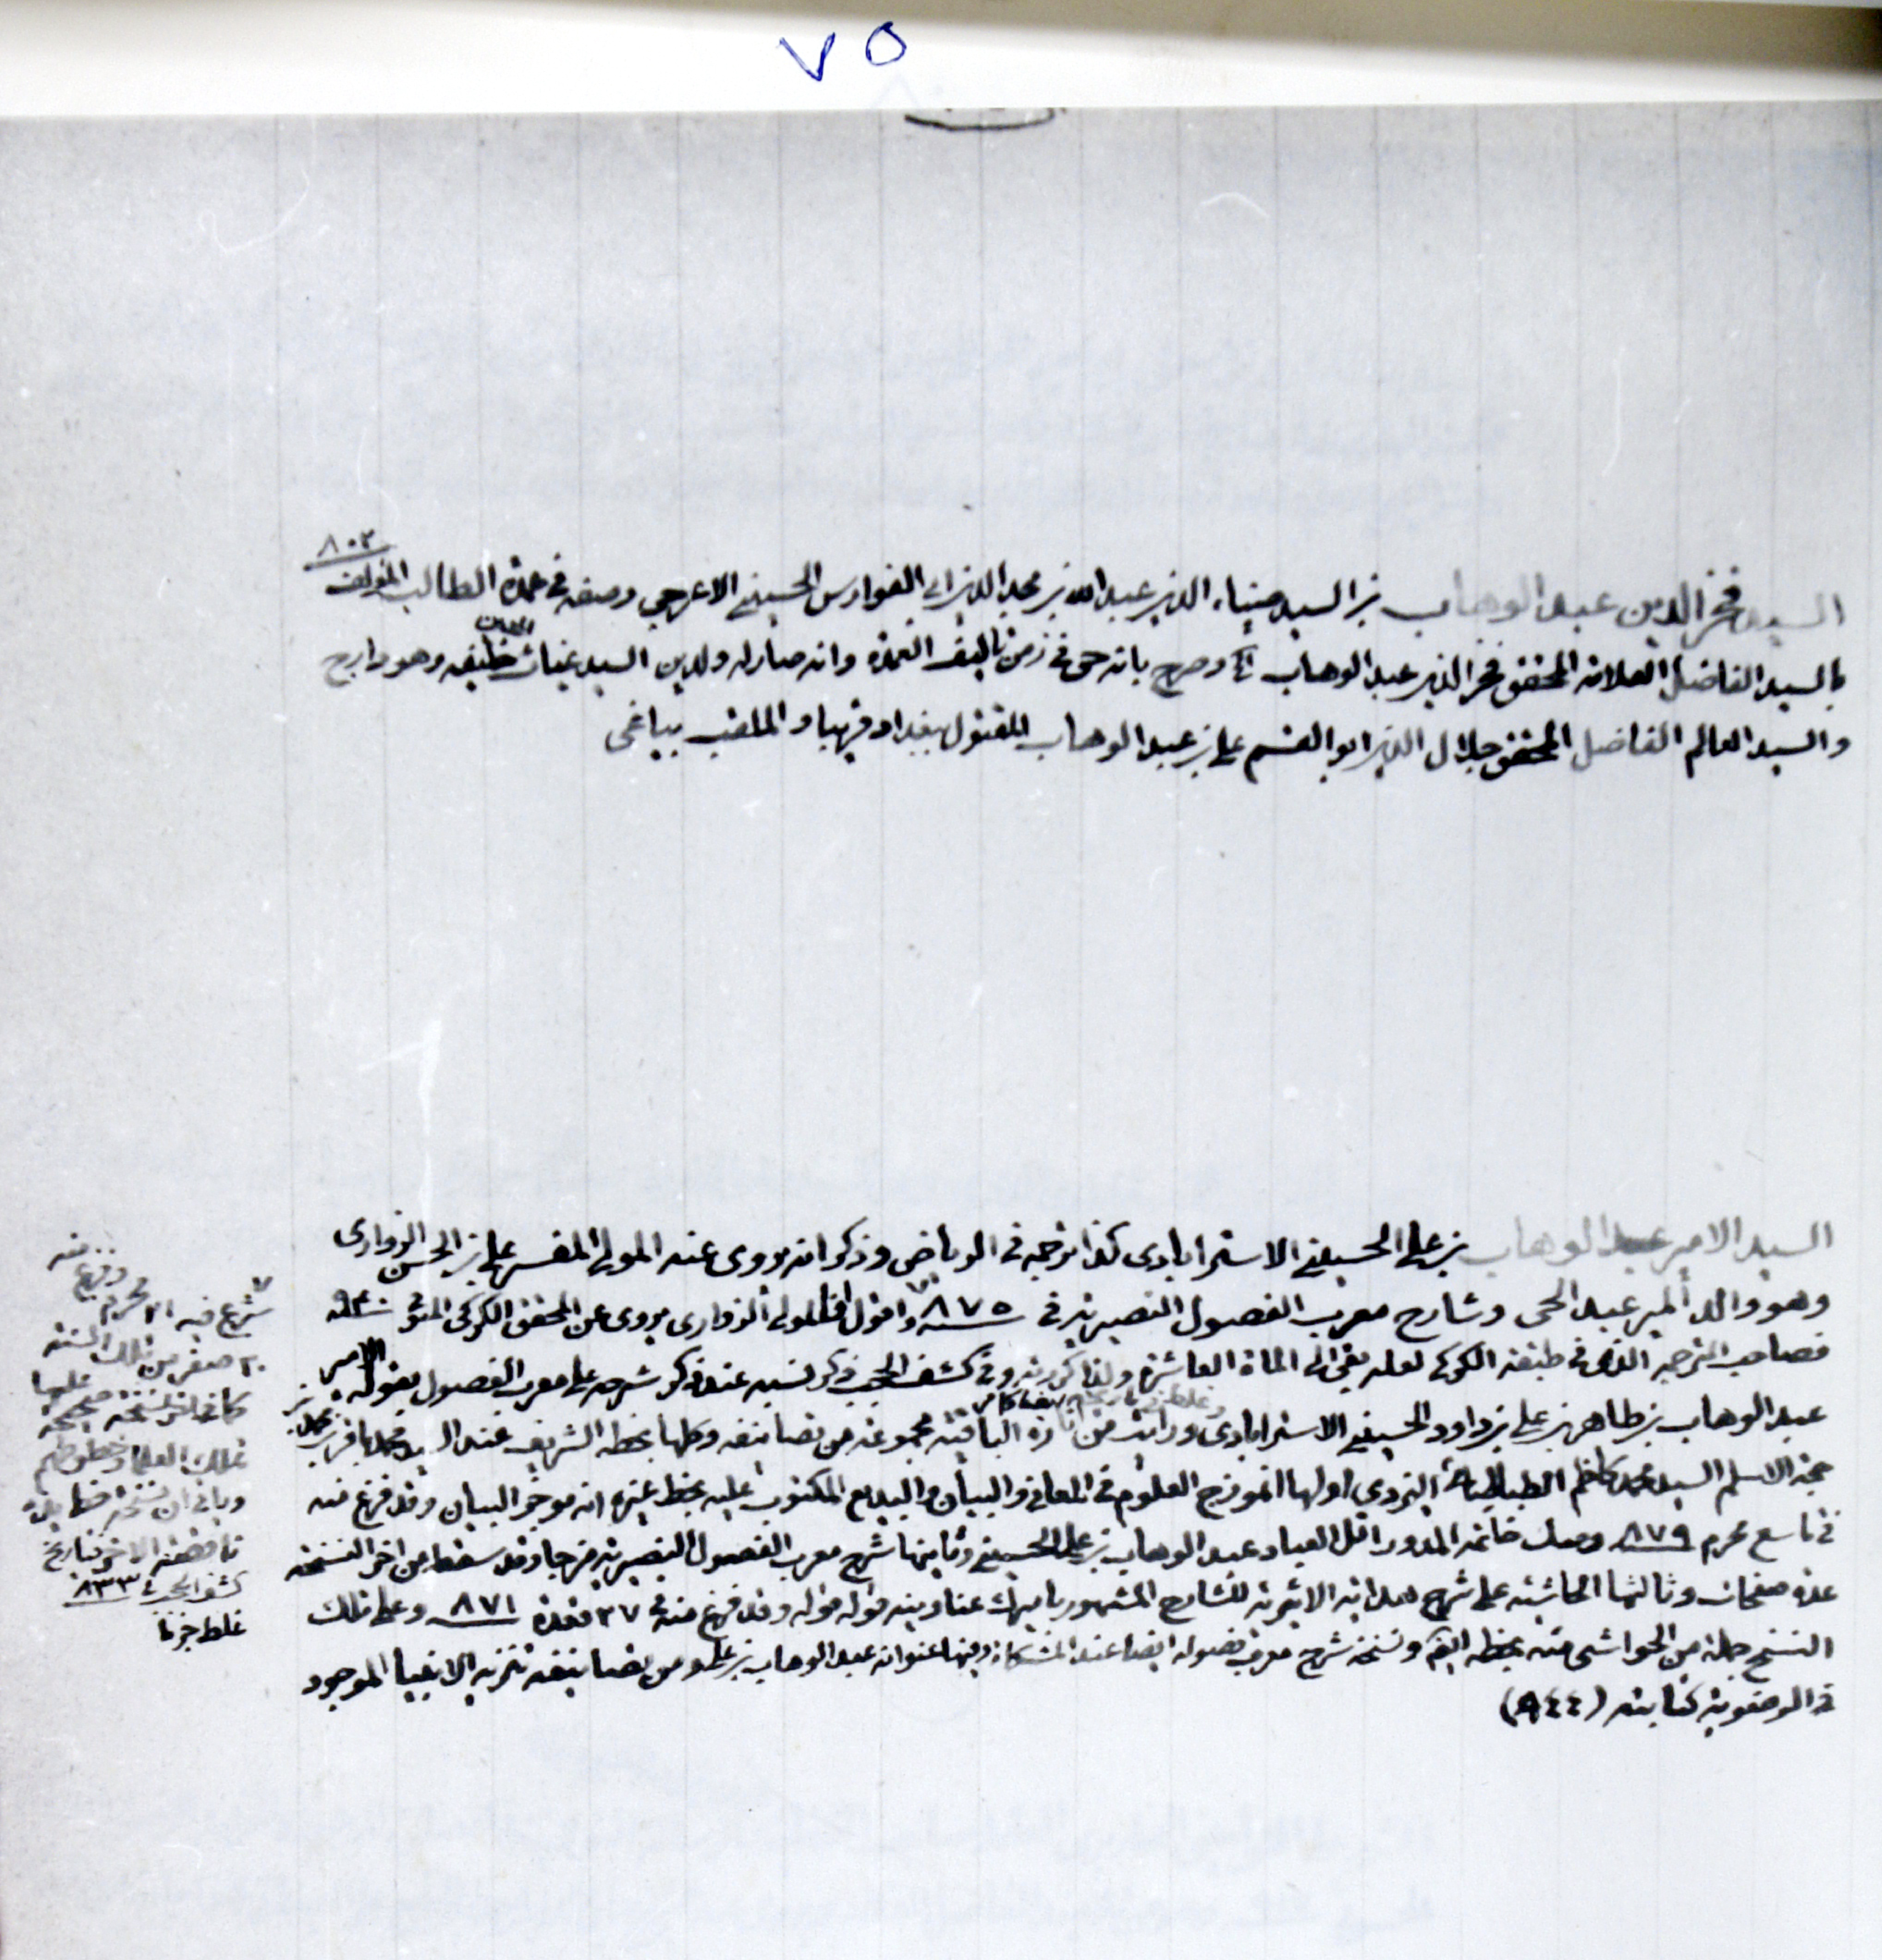 ٧٥
٨٠٢
السيد فخر الدين عبد الوهاب بن السيد ضياء الدين عبد الله بن مجد الدين ابى الفوارس الحسينى الاعرجى وصفه فى عمدة الطالب المؤلف
بالسيد الفاضل العلامة المحقق فخر الدين عبد الوهاب وصرح بانه حى فى زمن تاليف العمدة وانه صار له ولدين السيد غياث الدين خليفه وهو دارج
والسيد العالم الفاضل المحقق جلال الدين ابو القسم على بن عبد الوهاب المقتول ببغداد والملقب بياغى
السيد الامير عبد الوهاب بن على الحسينى الاسترابادى كذا ترجمه فى الرياض وذكر انه يروى عنه المولى المفسر على بن الحسن الزوارى
وهو والد المير عبد الحى وشارح معرب الفصول النصيرية فى ٨٧٥ واقول ان المولى الزوارى يروى عن المحقق الكركى المتوفى ٩٤٠
فصاحب الترجمة الذى فى طبقة الكركى لعله بقى الى الماة العاشرة ولذا وفى كشف الحجب ذكر نسبه عند ذكر شرحه على معرب الفصول بقوله الامير
عبد الوهاب بن طاهر بن على بن داود الحسينى الاسترابادى ورايت من الباقية مجموعة من تصانيفه وكلها بخطه الشريف عند السيد محمد باقر بن
حجة الاسلام السيد محمد كاظم الطباطبائى اليزدى اولها انموذج العلوم فى المعانى والبيان والبديع المكتوب عليه بخط غيره انه موجز البيان وقد فرغ منه
فى تاسع محرم ٨٧٩ خاتمه المدور اقل العباد عبد الوهاب بن على الحسينى وثانيها شرح معرب الفصول النصيرية مزجا وقد سقط من اخر النسخة
عدة صفحات وثالثها الحاشية على شرح هداية الاثيرية للشارح المشهور بالميرك عناوينه قوله قوله وقد فرغ منه فى ٢٧ قعدة ٨٧١ وعلى تلك
النسخ جملة من الحواشى منه بخطه ونسخة شرح معرب فصوله ايضا عند المشكاة وفيها عنوانه عبد الوهاب بن على ومن تصانيفه تنزيه الانبيا الموجود
فى الرضوية كتابته (٩٤٤)
شرع فيه ٢١ محرم وفرغ منه
٢٠ صفر من تلك السنة
كما فى اخر النسخة عليها
تملك العلماء وخطوطهم
ناقصة الاخر فتاريخ
كشف الحجب ٨٣٣
غلط جزما